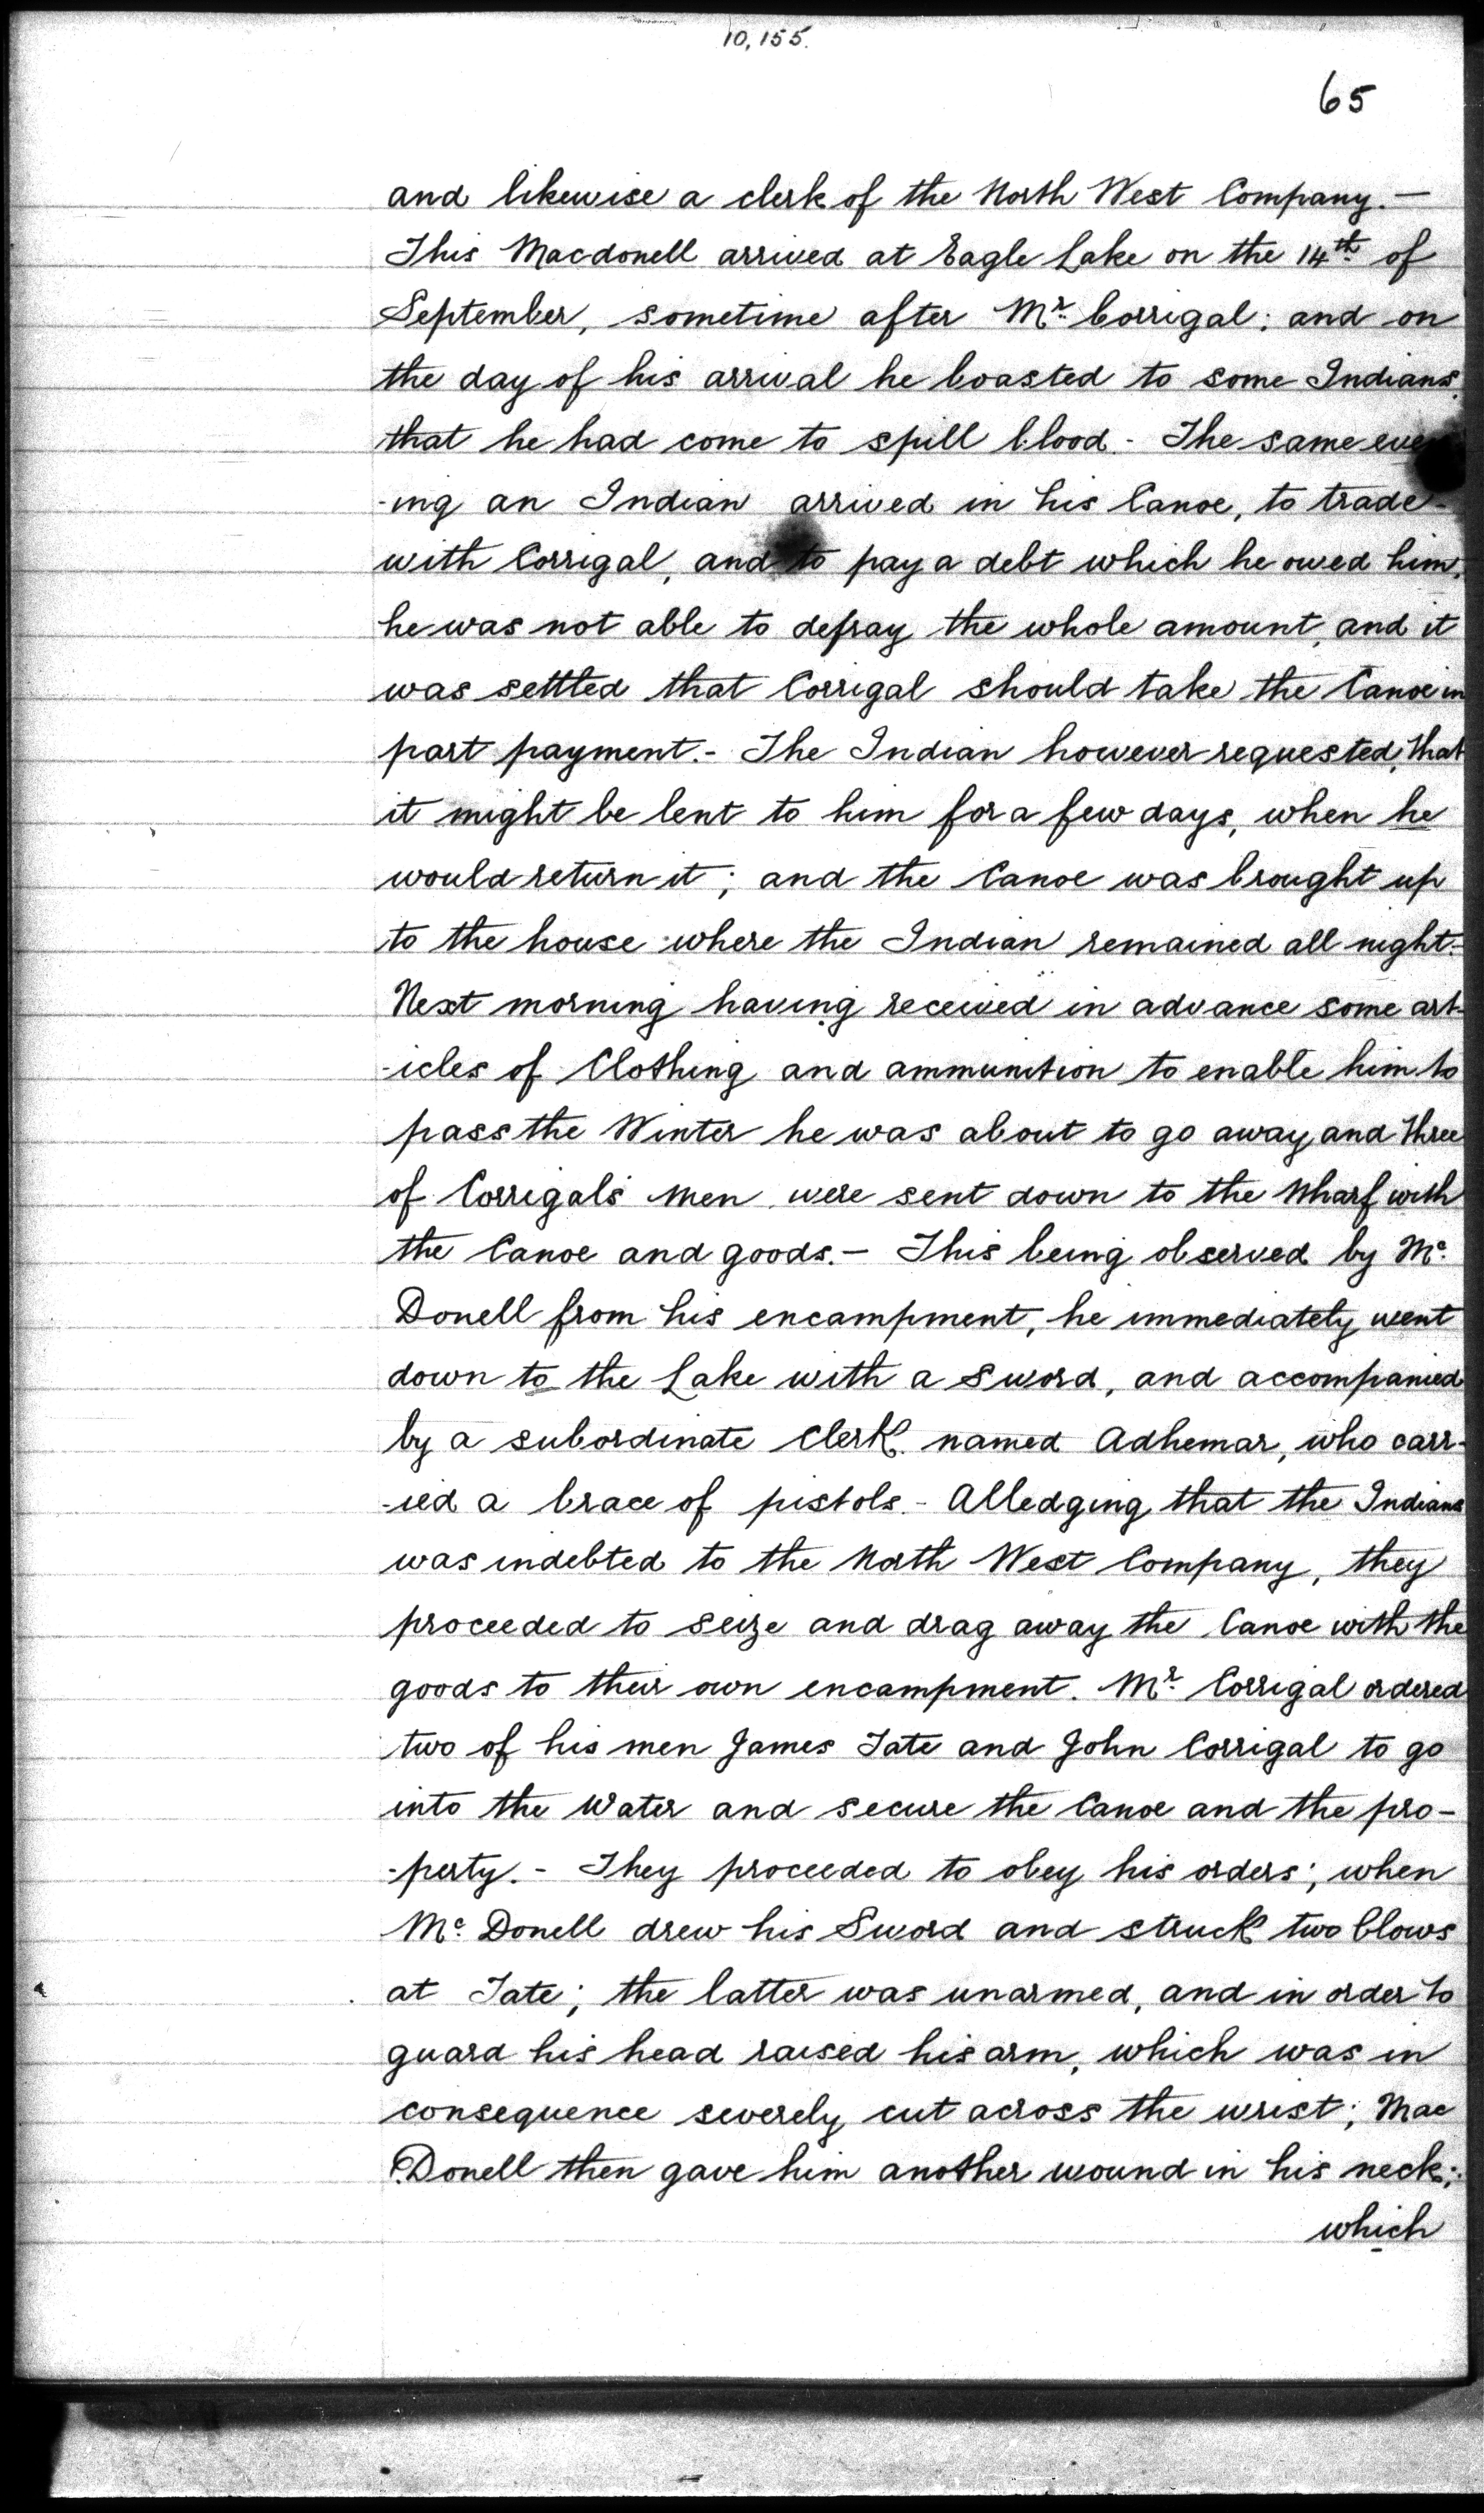 10,155.
65
and likewise a clerk of the North West Company. —
This Macdonell arrived at Eagle Lake on the 14th of
September, sometime after Mr. Corrigal; and on
the day of his arrival he boasted to some Indians,
that he had come to spill blood. - The same even
-ing an Indian arrived in his Canoe, to trade -
with Corrigal, and to pay a debt which he owed him,
he was not able to defray the whole amount, and it
was settled that Corrigal should take the Canoe in
part payment. - The Indian however requested, that
it might be lent to him for a few days, when he
would return it; and the Canoe was brought up
to the house where the Indian remained all night. -
Next morning having received in advance some art-
-icles of Clothing and ammunition to enable him to
pass the Winter he was about to go away, and three
of Corrigals men were sent down to the Wharf with
the Canoe and goods. — This being observed by Mc.
Donell from his encampment, he immediately went
down to the Lake with a Sword, and accompanied
by a subordinate Clerk named Adhemar, who carr-
-ied a brace of pistols. - Alledging that the Indians
was indebted to the North West Company, they
proceeded to seize and drag away the Canoe with the
goods to their own encampment. Mr. Corrigal ordered
two of his men James Tate and John Corrigal to go
into the Water and secure the Canoe and the pro-
-perty. - They proceeded to obey his orders; when
Mc. Donell drew his Sword and struck two blows
at Tate; the latter was unarmed, and in order to
guard his head raised his arm, which was in
consequence severely cut across the wrist; Mac
Donell then gave him another wound in his neck;
which